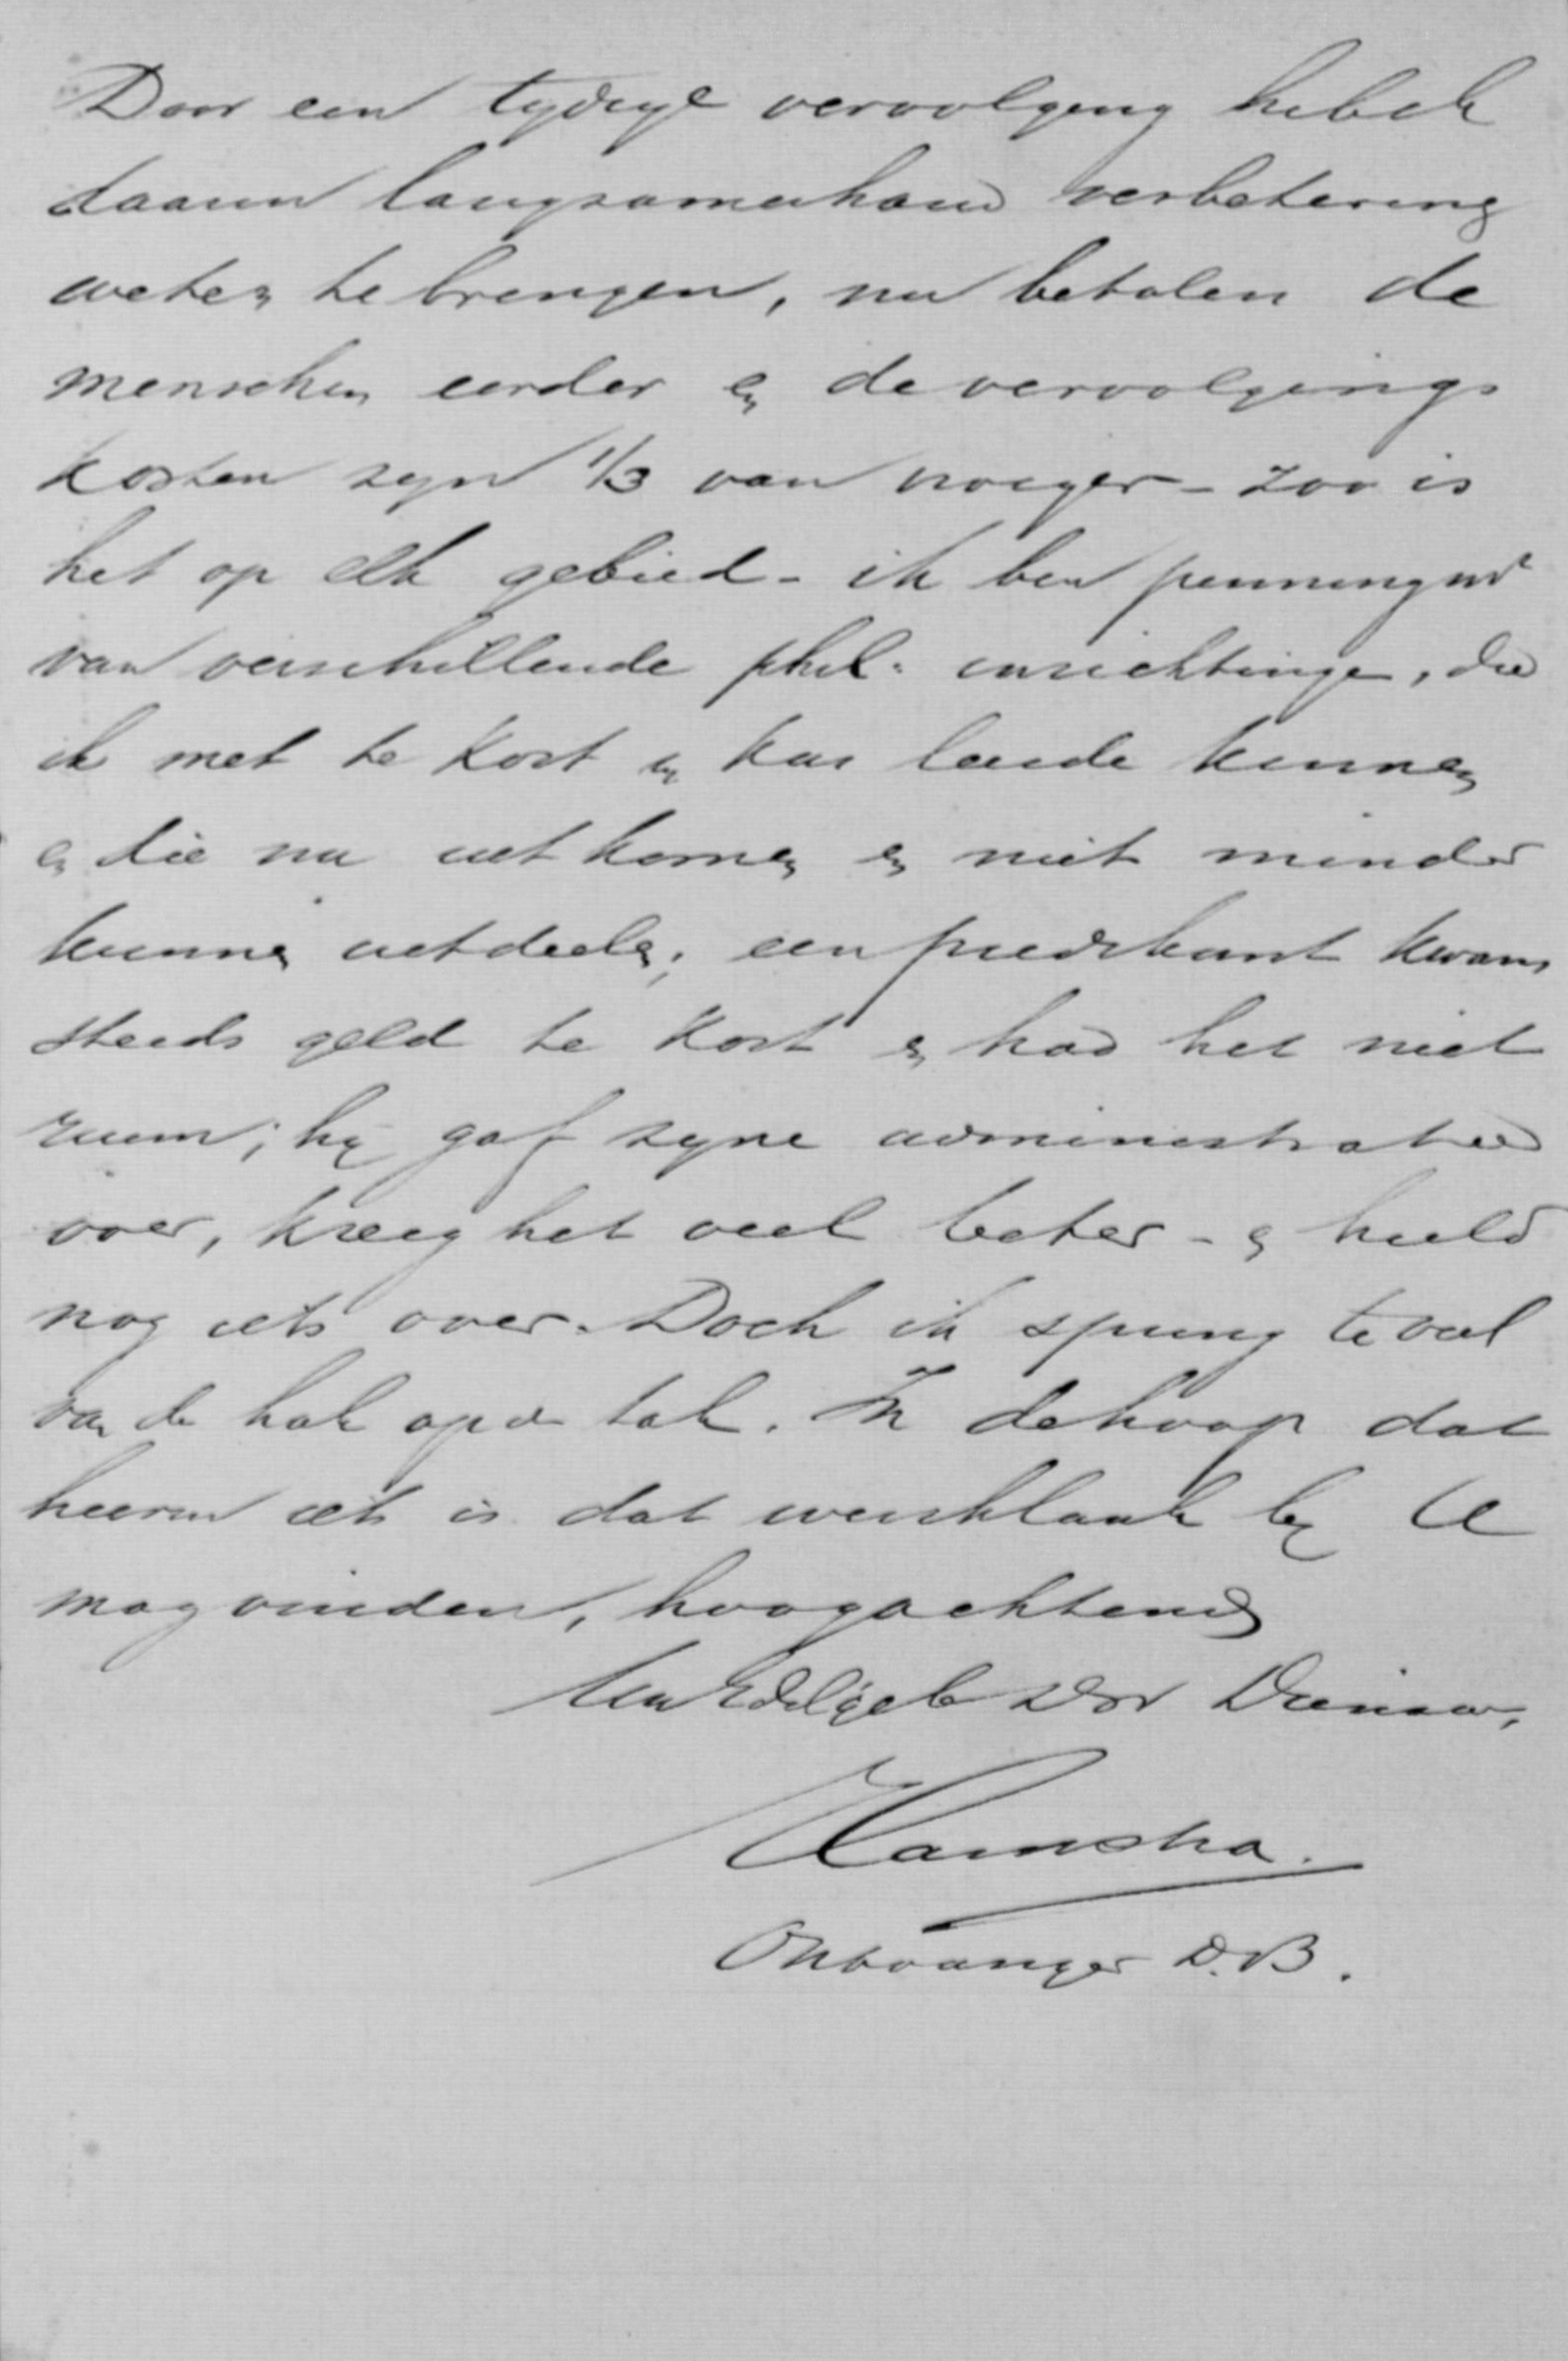 Door een tydige vervolging heb ik
daarin langzamerhand verbetering
weten te brengen, nu betalen de
menschen eerder en de vervolgings
kosten zyn 1/3 van vroeger - zoo is
het op elk gebied - ik ben penningmr
van verschillende phil. inrichtingen, die
ik met te kort in kas leerde kennen
en die nu uitkomen en niet minder
kunnen uitdeelen; een predikant kwam
steeds geld te kort en had het niet
ruim; hy gaf zyne administratie
over, kreeg het veel beter - en hield
nog iets over. Doch ik spring te veel
van de hak op de tak. In de hoop dat
hierin iets is dat weerklank by U
mag vinden, hoogachtend
Uw Edelgeb Dw Dienaar,
Hamstra.
Ontvanger D.B.